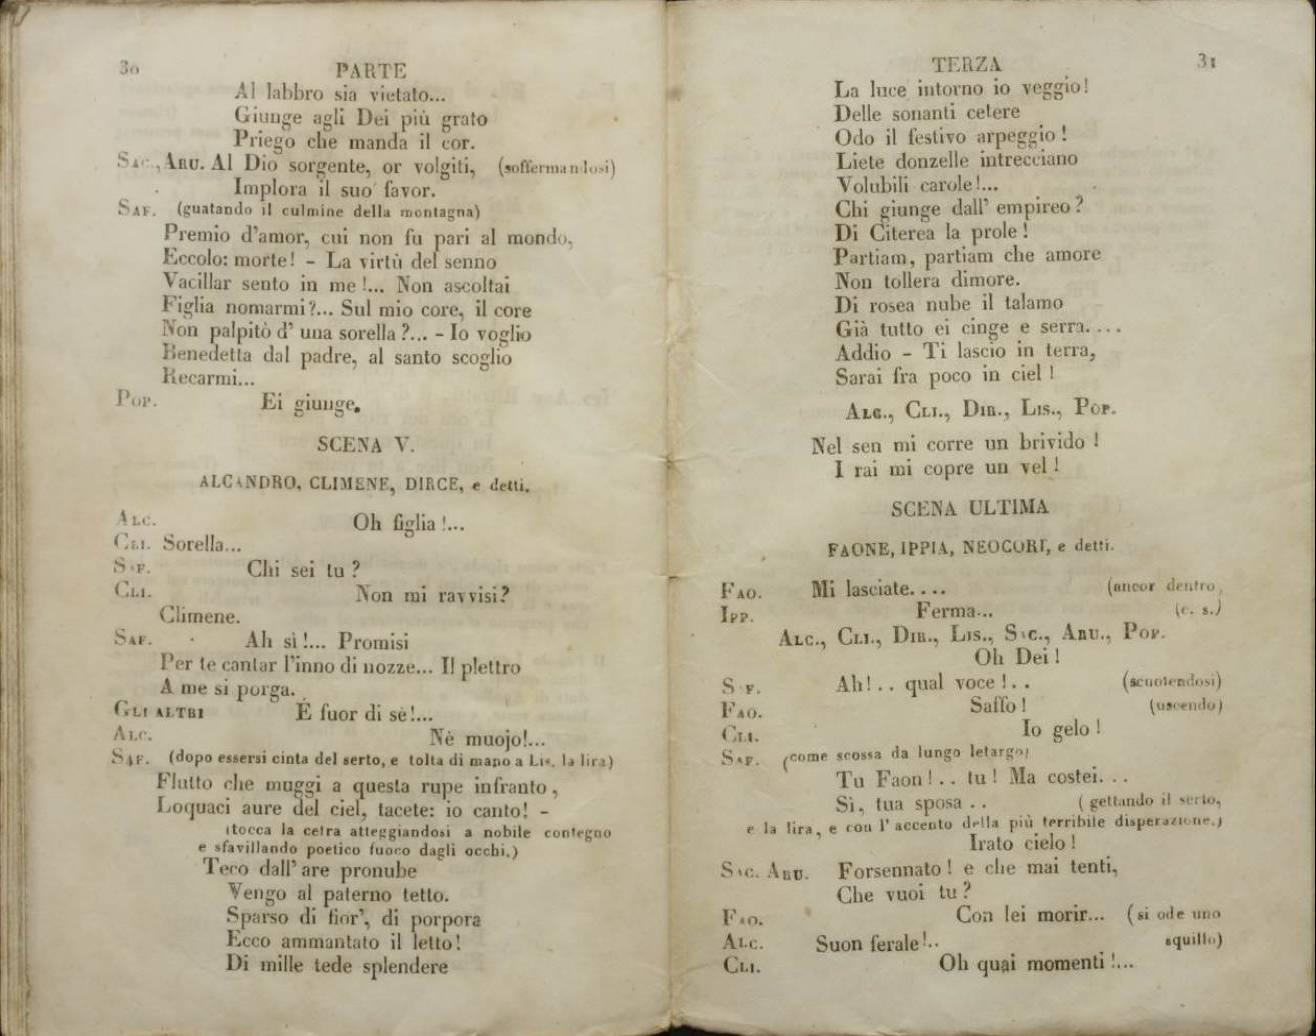 30
PARTE
Al labbro sia vietato...
Giunge agli Dei più grato
Priego che manda il cor.
SAC., ARU. Al Dio sorgente, or volgiti, (soffermandosi)
Implora il suo favor.
SAF. (guatando il culmine della montagna)
Premio d'amor, cui non fu pari al mondo,
Eccolo: morte! - La virtù del senno
Vacillar sento in me!... Non ascoltai
Figlia nomarmi?... Sul mio core, il core
Non palpitò d' una sorella?... - Io voglio
Benedetta dal padre, al santo scoglio
Recarmi...
POP. Ei giunge.
SCENA V.
ALCANDRO, CLIMENE, DIRCE, e detti.
ALC. Oh figlia!...
CLI. Sorella...
SAF. Chi sei tu?
CLI. Non mi ravvisi?
Climene.
SAF. Ah sì!... Promisi
Per te cantar l'inno di nozze... Il plettro
A me si porga.
GLI ALTRI É fuor di sè!...
ALC. Nè muojo!...
SAF. (dopo essersi cinta del serto, e tolta di mano a Lis. la lira)
Flutto che muggi a questa rupe infranto,
Loquaci aure del ciel, tacete: io canto! -
(tocca la cetra atteggiandosi a nobile contegno
e sfavillando poetico fuoco dagli occhi.)
Teco dall' are pronube
Vengo al paterno tetto.
Sparso di fior', di porpora
Ecco ammantato il letto!
Di mille tede splendere
TERZA
31
La luce intorno io veggio!
Delle sonanti cetere
Odo il festivo arpeggio!
Liete donzelle intrecciano
Volubili carole!...
Chi giunge dall' empireo?
Di Citerea la prole!
Partiam, partiam che amore
Non tollera dimore.
Di rosea nube il talamo
Già tutto ei cinge e serra....
Addio - Ti lascio in terra,
Sarai fra poco in ciel!
ALC., CLI., DIR., LIS., POP.
Nel sen mi corre un brivido!
I rai mi copre un vel!
SCENA ULTIMA
FAONE, IPPIA, NEOCORI, e detti.
FAO. Mi lasciate.... (ancor dentro)
IPP. Ferma... (c. s.)
ALC., CLI., DIR., LIS., SAC., ARU., POP.
Oh Dei!
SAF. Ah!.. qual voce!.. (scuotendosi)
FAO. Saffo! (uscendo)
CLI. Io gelo!
SAF. (come scossa da lungo letargo)
Tu Faon!.. tu! Ma costei...
Sì, tua sposa .. (gettando il serto,
e la lira, e con l' accento della più terribile disperazione.)
Irato cielo!
SAC. ARU. Forsennato! e che mai tenti,
Che vuoi tu?
FAO. Con lei morir... (si ode uno
ALC. Suon ferale!.. squillo)
CLI. Oh quai momenti!...